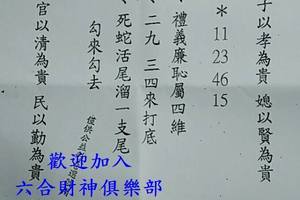 子以孝為貴 媳以賢為貴
* 11 23 46 15
、禮義廉恥屬四維
、二九 三四來打底
、死蛇活尾溜一支尾
勾來勾去
僅供公益
官以清為貴 民以勤為貴
歡迎加入
六合財神俱樂部